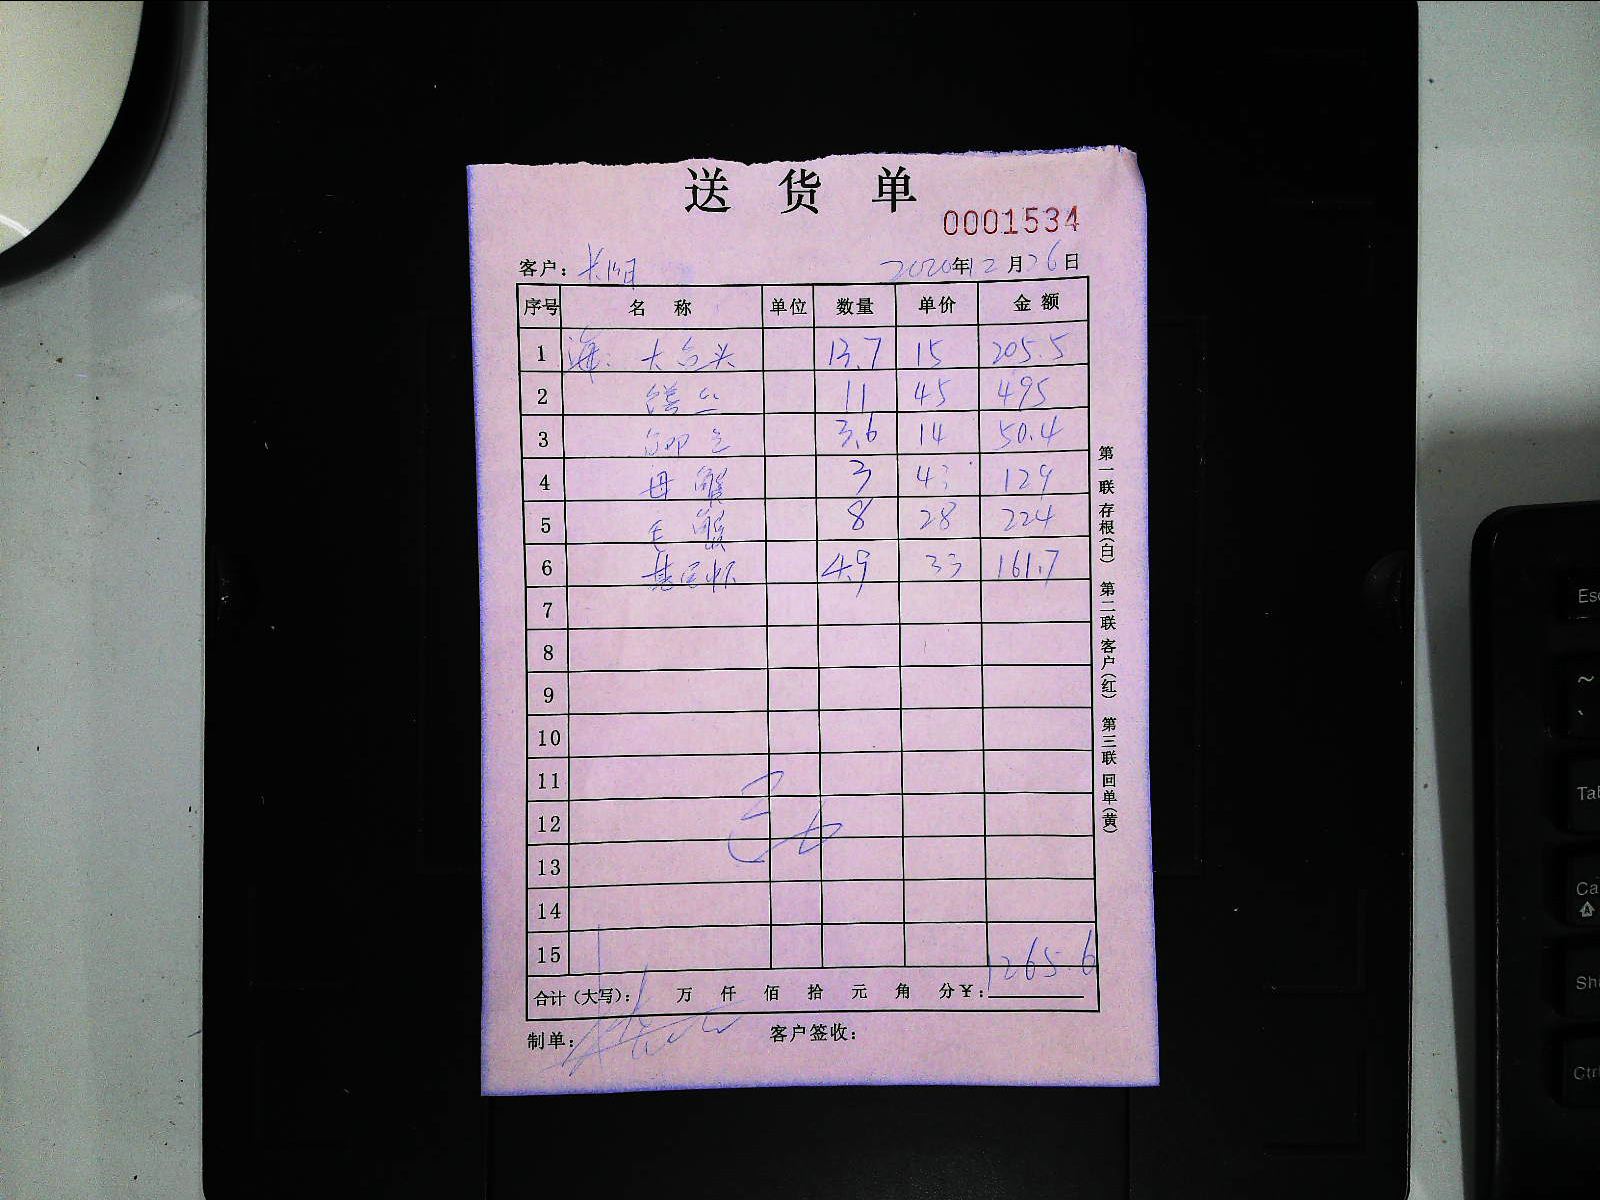 送货单
0001534
客户：长阳 2020年12月26日
序号 名称 单位 数量 单价 金额
1 海：大鱼头 13.7 15 205.5
2 11 45 495
3 3.6 14 50.4
4 母蟹 3 43 129
5 毛蟹 8 28 224
6 基尾虾 4.9 33 161.7
7
8
9
10
11
12
13
14
15 1265.6
合计（大写）： 万 仟 佰 拾 元 角 分 ¥：
制单： 客户签收：
第一联 存根（白） 第二联 客户（红） 第三联 回单（黄）
Esc
~
`
Tab
Ca
Sh
Ctrl